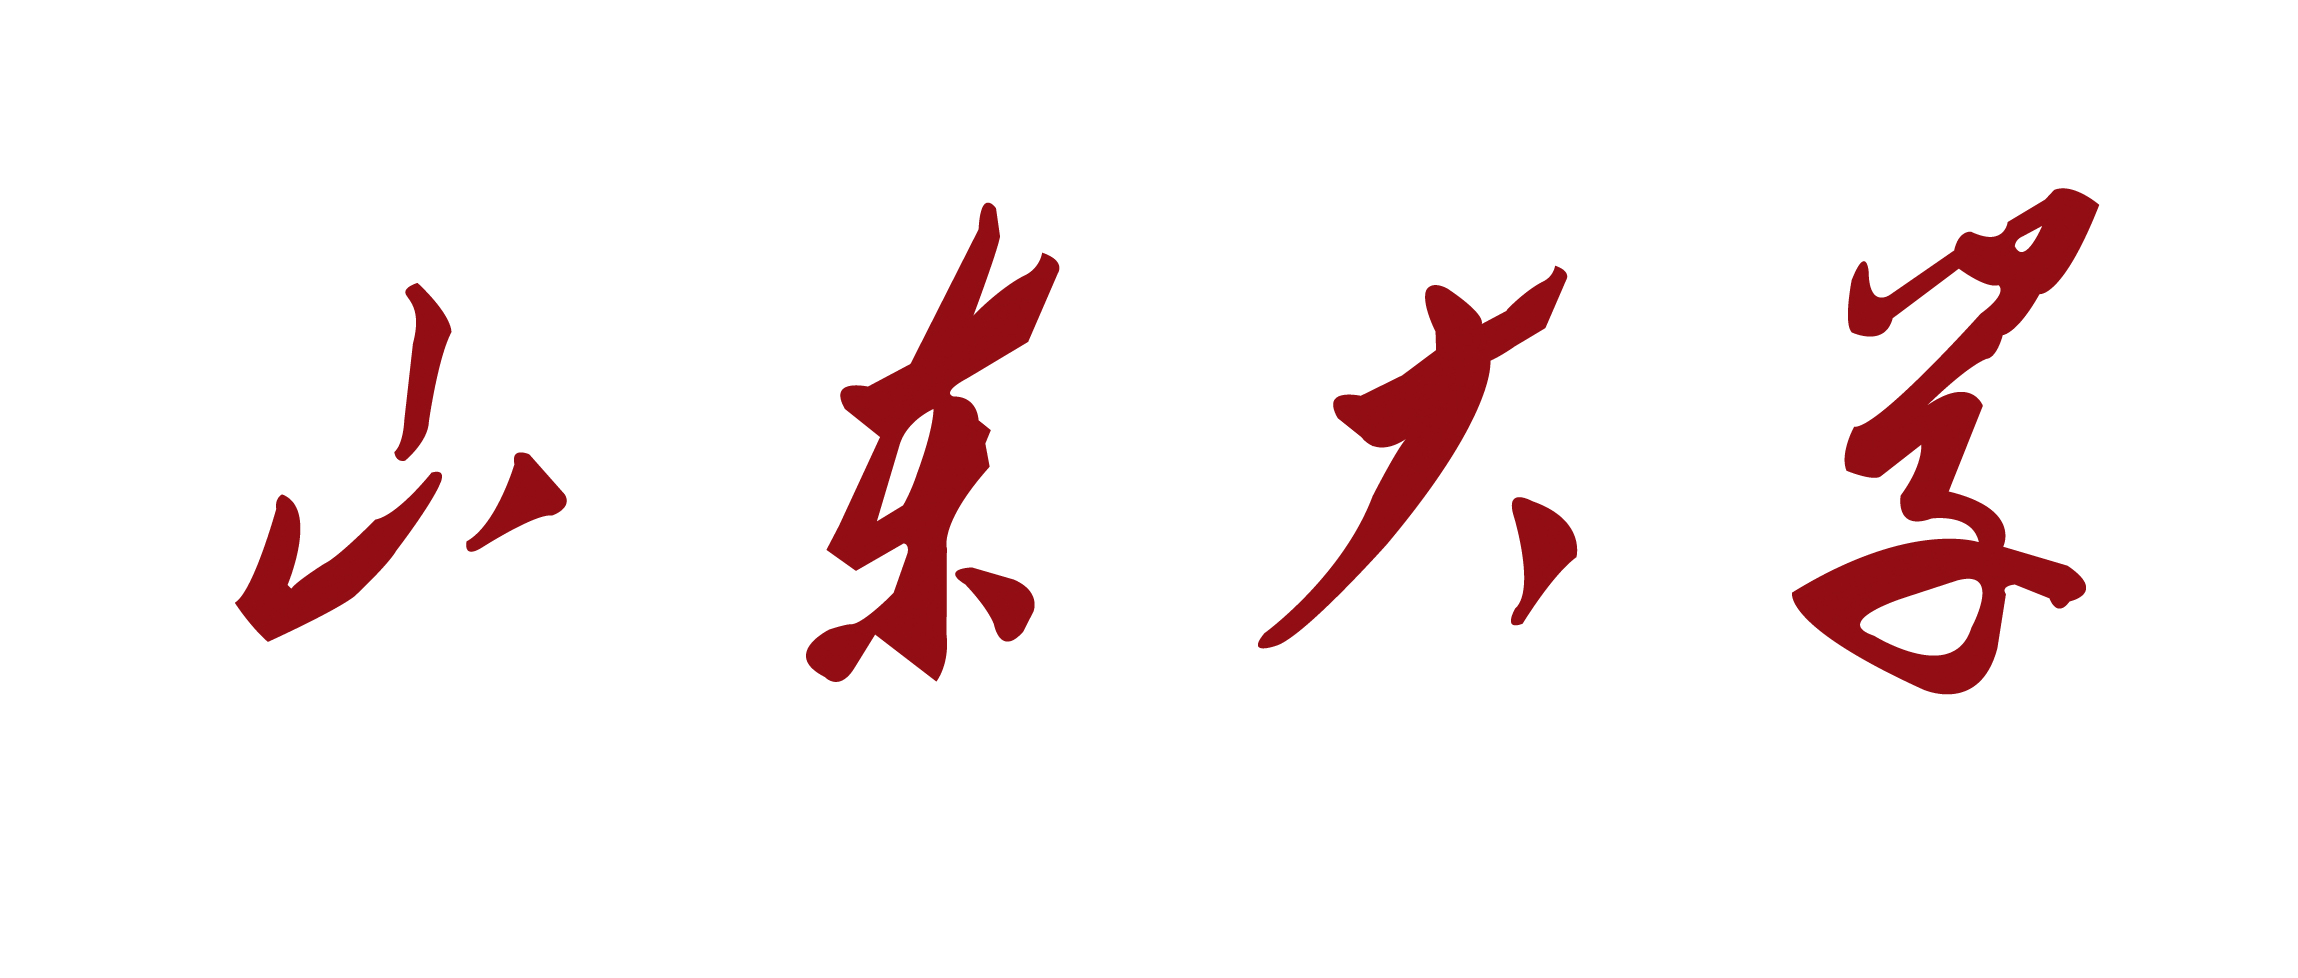 山东大学